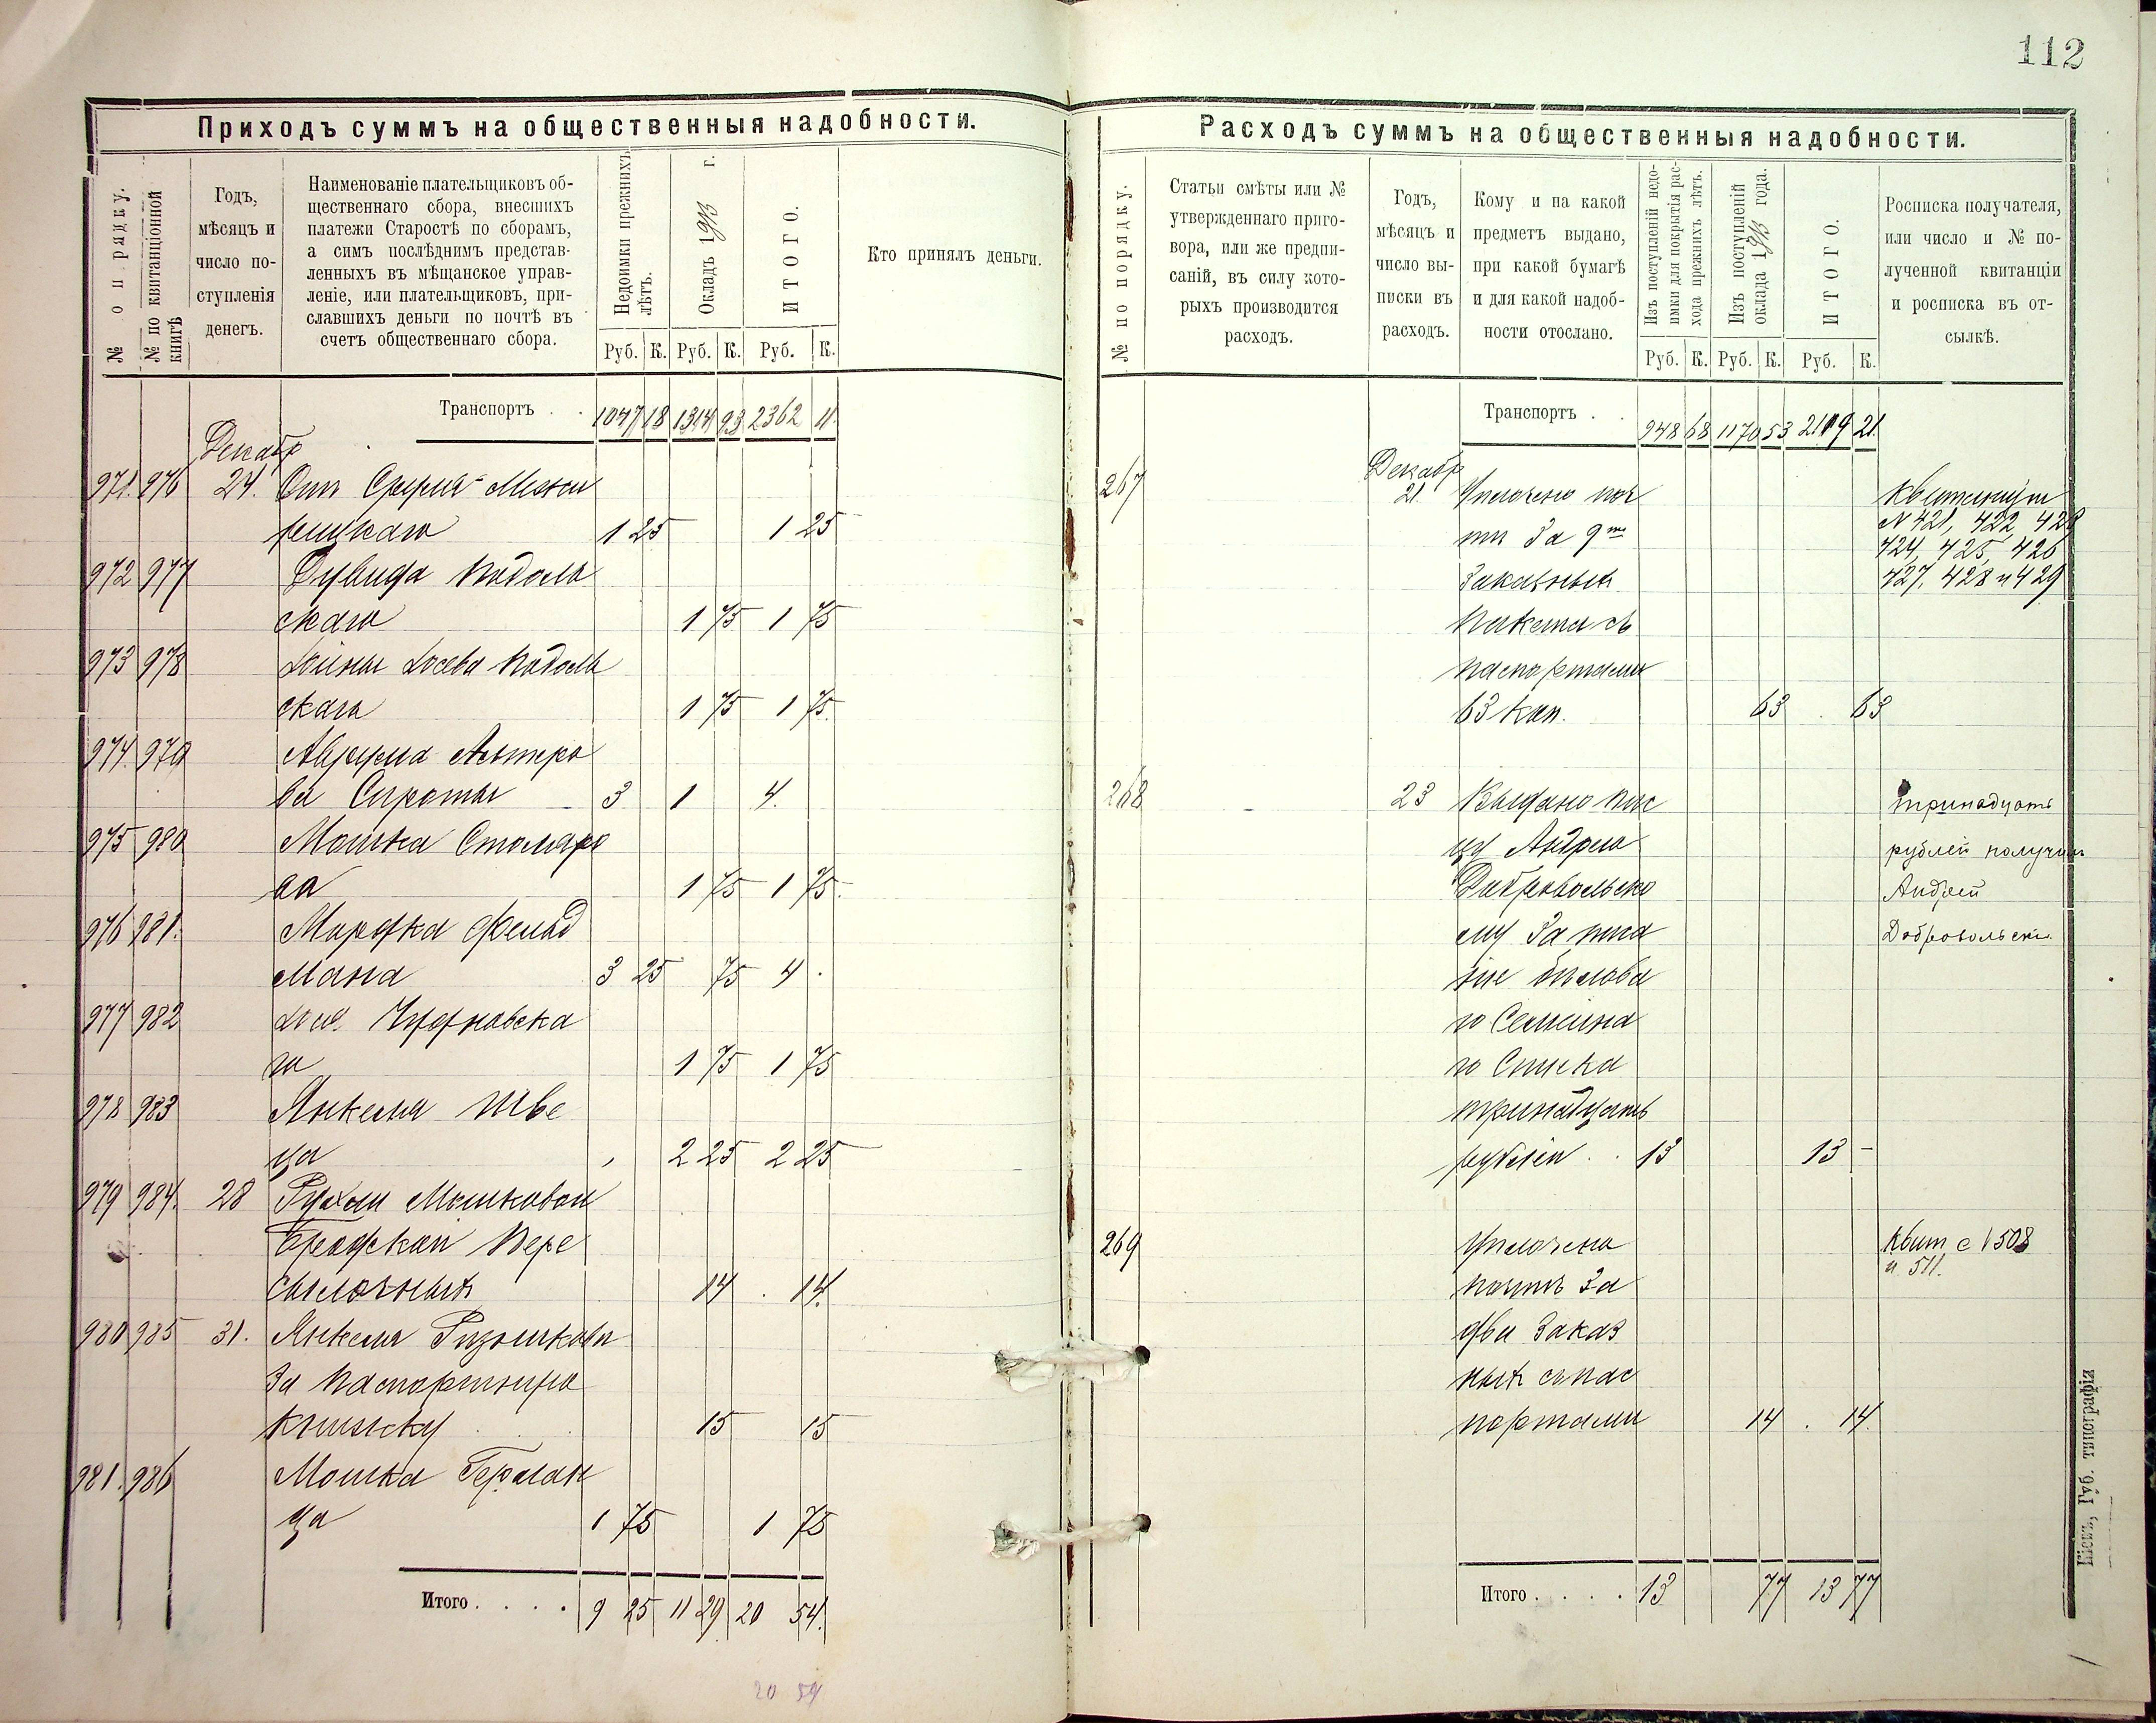 112
Приходъ суммъ на общественныя надобности.
№ по рядку.
№ по квитанціонной книгѣ
Годъ,
мѣсяцъ и
число по-
ступленія
денегъ.
Наименованіе плательщиковъ об-
щественнаго сбора, внесшихъ
платежи Старостѣ по сборамъ,
а симъ послѣднимъ представ-
ленныхъ въ мѣщанское управ-
леніе, или плательщиковъ, при-
славшихъ деньги по почтѣ въ
счетъ общественнаго сбора.
Недоимки прежнихъ
лѣтъ.
Окладъ 1913 г.
ИТОГО.
Кто принялъ деньги.
Руб. К. Руб. К. Руб. К.
Транспортъ . . 1047 18 1314 93 2362 11
Декабр
971. 976 24. Отъ Сруля Межи
рицкаго 1 25 1 25
972 977 Дувида Подоль
скаго 1 75 1 75
973 978 Іойны Іосева Подоль
скаго 1 75 1 75
974 979 Альтеро
ва Сироты 3 1 4.
975 980 Мошка Столяро
ва 1 75 1 75
976 981. Мордка Фельд
мана 3 25 75 4 .
977 982 Іос. Чедновска
го 1 75 1 75
978 983 Янкеля Шве
ца 2 25 2 25
979 984. 28 Рухли Мошковой
Бродской Пере
сылочныхъ 14 . 14.
980 985 31. Янкеля
за паспортную
книжку 15 15
981. 986 Мошка Герман
ца 1 75 1 75
Итого . . . . 9 25 11 29 20 54.
20 54
Расходъ суммъ на общественныя надобности.
№ по порядку.
Статьи смѣты или №
утвержденнаго приго-
вора, или же предпи-
саній, въ силу кото-
рыхъ производится
расходъ.
Годъ,
мѣсяцъ и
число вы-
писки въ
расходъ.
Кому и на какой
предметъ выдано,
при какой бумагѣ
и для какой надоб-
ности отослано.
Изъ поступленій недо-
имки для покрытія рас-
хода прежнихъ лѣтъ.
Изъ поступленій
оклада 1913 года.
ИТОГО.
Росписка получателя,
или число и № по-
лученной квитанціи
и росписка въ от-
сылкѣ.
Руб. К. Руб. К. Руб. К.
Транспортъ . . 948 68 1170 53 2119 21.
Декабр
267 21. Уплочено поч
ти За 9ть
Заказныхъ
пакета съ
паспортами
63 коп. 63 . 63
Квитанціи
№ 421, 422, 423
424, 425, 426
427, 428 и 429
268 23 Выдано пис
цу Андрею
Добровольско
му За писа
ніе бѣлова
го Семейна
го Списка
тринадцать
рублей . . 13 13 -
тринадцать
рублей получил
Андрей
Добровольскій
269 Уплочено
почтѣ За
два Заказ
ныхъ съ пас
портами 14 . 14.
Квит с № 508
и 511.
Итого . . . . 13 77 13 77
Кіевъ, Губ. типографія